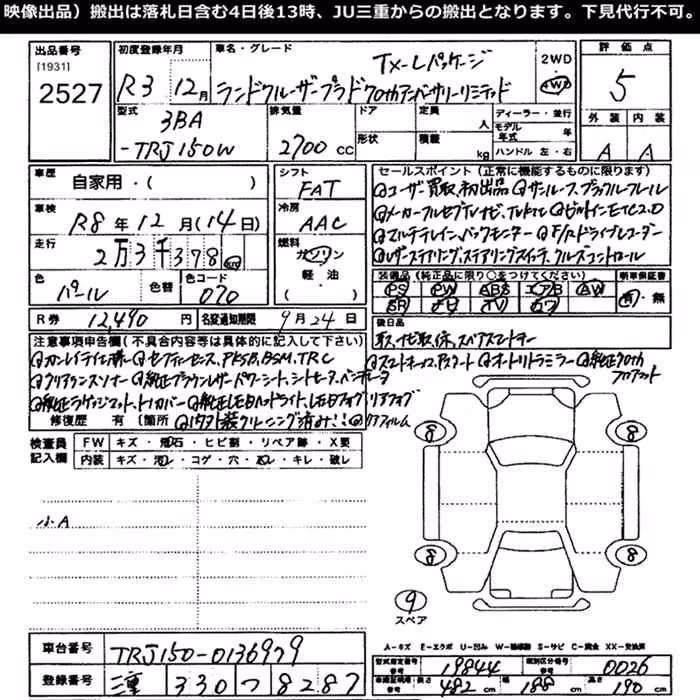 映像出品）搬出は落札日含む4日後13時、JU三重からの搬出となります。下見代行不可。
出品番号 初度登録年月 車名・グレード TX-Lパッケージ 2WD 評価点
[1931]
2527 R3 12月 ランドクルーザープラド70thアニバーサリーリミテッド 4WD 5
型式 3BA 排気量 ドア 定員 人 ディーラー・並行 外装 内装
モデル年式 年
-TRJ150W 2700 cc 形状 積載 kg ハンドル 左・右 A A
車歴 自家用・( ) シフト FAT セールスポイント（正常に機能するものに限ります）
◎ユーザー買取、初出品 ◎サンルーフ、ブラックルーフレール
車検 R8年12月(14日) 冷房 AAC ◎メーカーフルセグTVナビ、 ◎ビルトインETC2.0
走行 2万3千378km 燃料 ガソリン ◎マルチテレイン、バックモニター ◎F/Rドライブレコーダー
◎レザーステアリング、ステアリングスイッチ、クルーズコントロール
色 パール 色替 色コード 070 軽・油 ( ) 装備品（純正品に限り○をつけてください） 新車保証書
PS PW ABS エアB AW 有・無
SR ナビ TV カワ
R券 12,490円 名変通知期限 9月24日 後日品
注意事項申告欄（不具合内容等は具体的に記入して下さい）
◎セーフティセンス、PKSB、BSM、TRC ◎スマートキー ◎オートリトラミラー ◎純正70th フロアマット
◎クリアランスソナー ◎純正ブラウンレザーパワーシート、シートヒーター、ベンチレーター
◎純正ラゲッジマット、トノカバー ◎純正LEDヘッドライト、LEDフォグ、リアフォグ
修復歴 有 (箇所 ◎内外装クリーニング済み!! ◎リアフィルム
検査員記入欄 FW キズ・飛石・ヒビ割・リペア跡・X要
内装 キズ・汚レ・コゲ・穴・スレ・キレ・破レ
小A
8 8
8 8
9
スペア
A-キズ E-エクボ U-凹み W-補修跡 S-サビ C-腐食 XX-交換済
車台番号 TRJ150-0136979 型式指定番号 19844 類別区分番号 0026
登録番号 三重 330 つ 8287 長さ 482 cm 幅 188 cm 高さ 190 cm